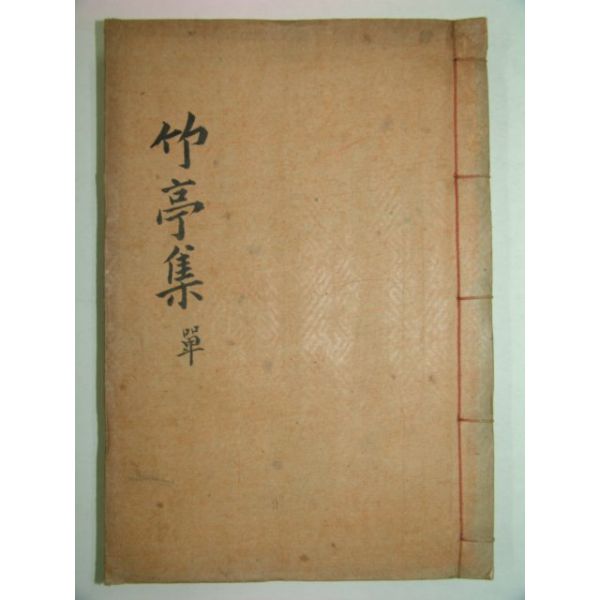 竹亭集 單